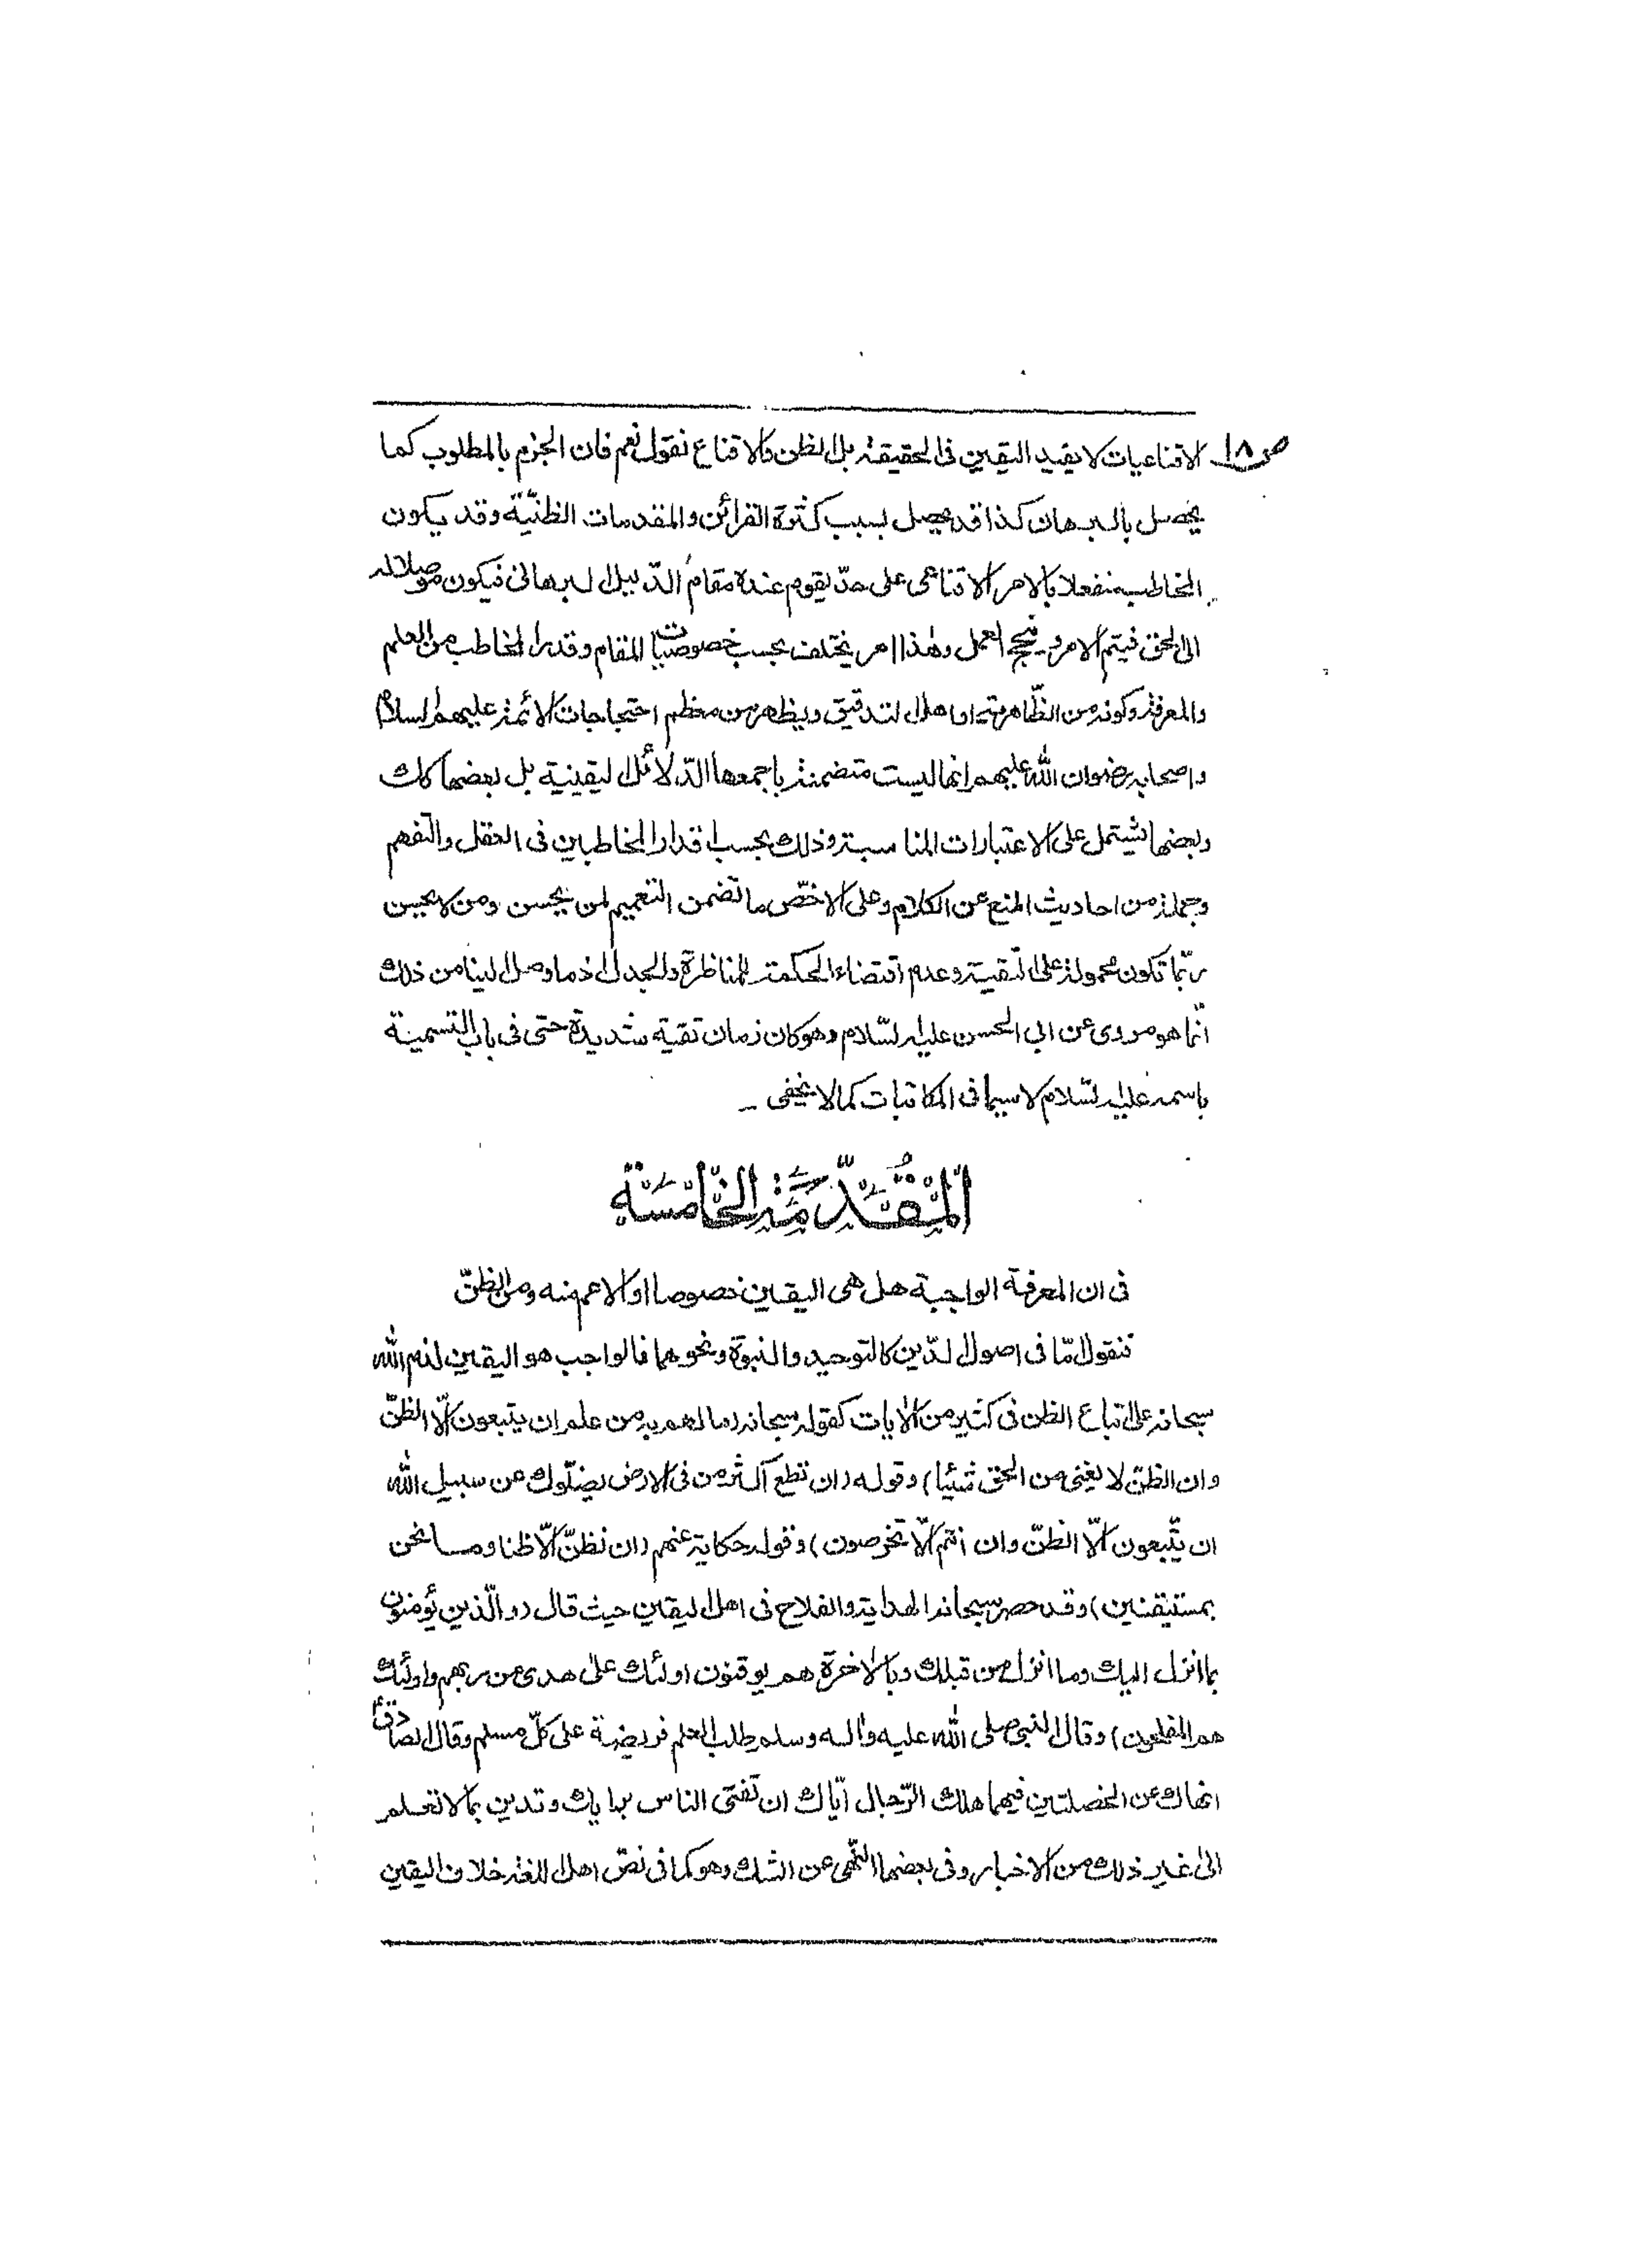 ص ١٨
الاقناعيات لا يفيد اليقين فى الحقيقة بل الظن والاقناع نقول نعم فان الجزم بالمطلوب كما
يحصل بالبرهان كذا قد يحصل بسبب كثرة القرائن والمقدمات الظنيّة وقد يكون
المخاطب منفعلا بالامر الاقناعى على حدّ يقوم عنده مقام الدّليل البرهانى فيكون موصلا له
الى الحق فيتم الامر و ينجح العمل وهذا امر يختلف بحسب خصوصيات المقام وقدر المخاطب من العلم
والمعرفة وكونه من الظّاهرية او اهل التدقيق ويظهر من معظم احتجاجات الائمة عليهم السلام
واصحابه رضوان الله عليهم انها ليست متضمنة باجمعها الدّلائل اليقينية بل بعضها كك
وبعضها يشتمل على الاعتبارات المناسبة وذلك بحسب اقدار المخاطبين فى العقل والتفهم
وجملة من احاديث المنع عن الكلام وعلى الاخصّ ما تضمن التعميم لمن يحسن ومن لا يحسن
ربّما تكون محمولة على التقية وعدم اقتضاء الحكمة للمناظرة والجدل اذ ما وصل الينا من ذلك
انّما هو مروى عن ابى الحسن عليه السّلام وهو كان زمان تقية شديدة حتى فى باب التسمية
باسمه عليه السّلام لا سيما فى المكاتبات كما لا يخفى -
اَلْمُقَدِّمَةُ الخَامِسَةِ
فى ان المعرفة الواجبة هل هى اليقين خصوصا او الاعم منه ومن الظنّ
فنقول امّا فى اصول الدّين كالتوحيد والنبوة ونحوهما فالواجب هو اليقين لذم الله
سبحانه على اتباع الظن فى كثير من الايات كقوله سبحانه (وما لهم به من علم ان يتبعون الّا الظنّ
وان الظنّ لا يغنى من الحق شيئا) وقوله (ان تطع اكثر من فى الارض يضلّوك عن سبيل الله
ان يتّبعون الّا الظنّ وان انتم الّا تخرصون) وقوله حكاية عنهم (ان نظنّ الّا ظنا وما نحن
بمستيقنين) وقد حصر سبحانه الهداية والفلاح فى اهل اليقين حيث قال (والّذين يؤمنون
بما انزل اليك وما انزل من قبلك وبالاخرة هم يوقنون اولئك على هدى من ربهم واولئك
هم المفلحون) وقال النبى صلى الله عليه واله وسلم طلب العلم فريضة على كلّ مسلم وقال الصادق ع
انهاك عن الخصلتين فيهما هلك الرّجال ايّاك ان تفتى الناس برايك وتدين بما لا تعلم
الى غير ذلك من الاخبار وفى بعضها النّهى عن الشك وهو كما فى نصّ اهل اللغة خلاف اليقين